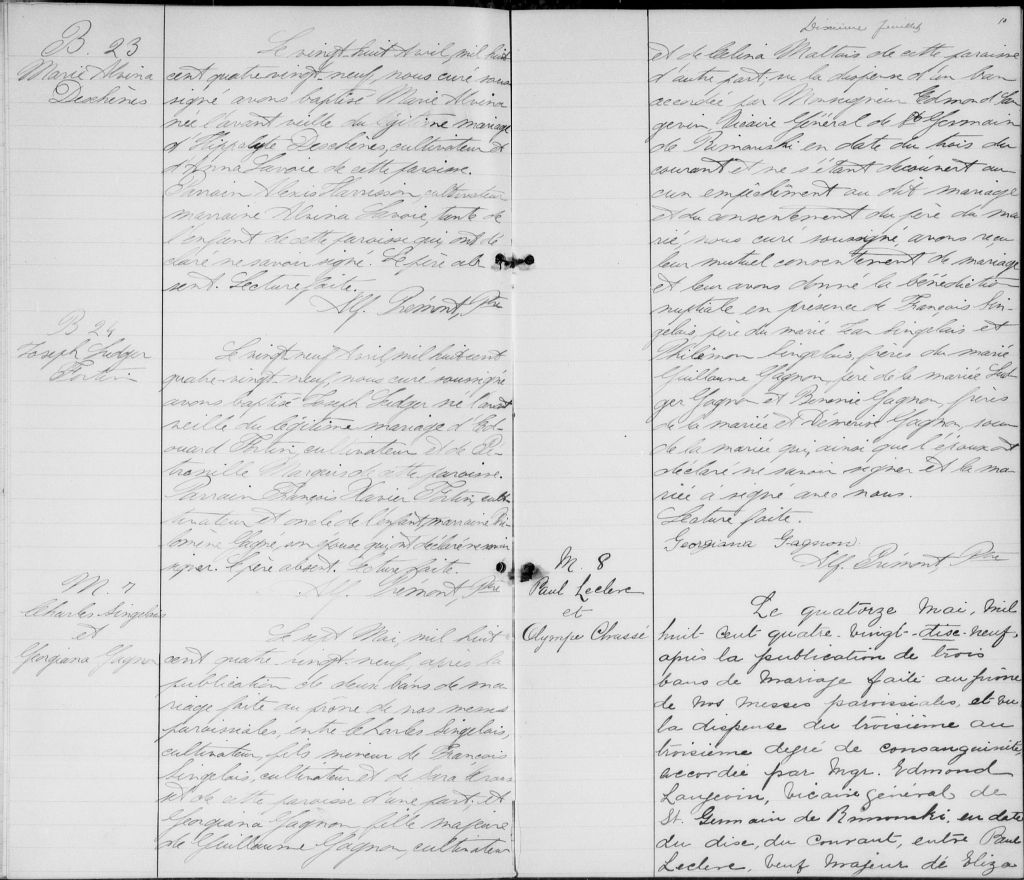 B. 23
Marie Alvina
Deschènes
Le vingt-huit Avril, mil huit
cent quatre-vingt-neuf, nous curé sous
signé avons baptisé Marie Alvina
née l'avant veille du légitime mariage
d'Hippolyte Deschènes, cultivateur et
d'Anna Lavoie de cette paroisse.
Parrain Alexis Harrisson, cultivateur
marraine Alvina Lavoie, tante de
l'enfant de cette paroisse qui ont dé
claré ne savoir signé. Le père ab
sent. Lecture faite.
Alf. Prémont, Ptre
B 24
Joseph Ludger
Fortin
Le vingt neuf Avril, mil huit cent
quatre-vingt-neuf, nous curé soussigné
avons baptisé Joseph Ludger né l'avant
veille du légitime mariage d'Ed-
ouard Fortin, cultivateur et de Pé-
tronille Marquis de cette paroisse.
Parrain François Xavier Fortin, culti-
vateur et oncle de l'enfant, marraine Phi
lomène Gagné, son épouse qui ont déclaré ne savoir
signer. Le père absent. Lecture faite.
Alf. Prémont, Ptre
M. 7
Charles Singelais
et
Georgiana Gagnon
Le sept Mai, mil huit
cent quatre-vingt-neuf, après la
publication de deux bans de ma-
riage faite au prône de nos messes
paroissiales, entre Charles Singelais,
cultivateur, fils mineur de François
Singelais, cultivateur et de Sara
et de cette paroisse d'une part, et
Georgiana Gagnon, fille majeure
de Guillaume Gagnon, cultivateur
Dixième feuillet
10
et de Célina Maltais de cette paroisse
d'autre part; vu la dispense d'un ban
accordée par Monseigneur Edmond Lan
gevin, Vicaire Général de St Germain
de Rimouski en date du trois du
courant et ne s'étant découvert au
cun empêchement au dit mariage
et du consentement du père du ma
rié, nous curé soussigné, avons reçu
leur mutuel consentement de mariage
et leur avons donné la bénédiction
nuptiale en présence de François Sin
gelais, père du marié, Jean Singelais et
Philémon Singelais, frères du marié
Guillaume Gagnon, père de la mariée Lud
ger Gagnon et Bénonie Gagnon, frères
de la mariée et Démérise Gagnon, soeur
de la mariée qui, ainsi que l'époux ont
déclaré ne savoir signer et la ma-
riée a signé avec nous.
Lecture faite.
Georgiana Gagnon
Alf. Prémont Ptre
M. 8
Paul Leclerc
et
Olympe Chassé
Le quatorze Mai, mil
huit-cent quatre-vingt-disc-neuf,
après la publication de trois
bans de mariage faite au prône
de nos messes paroissiales, et vu
la dispense du troisième au
troisième degré de consanguinité,
accordée par Mgr. Edmond
Langevin, vicaire général de
St. Germain de Rimouski, en date
du disc, du courant, entre Paul
Leclerc, veuf majeur de Eliza